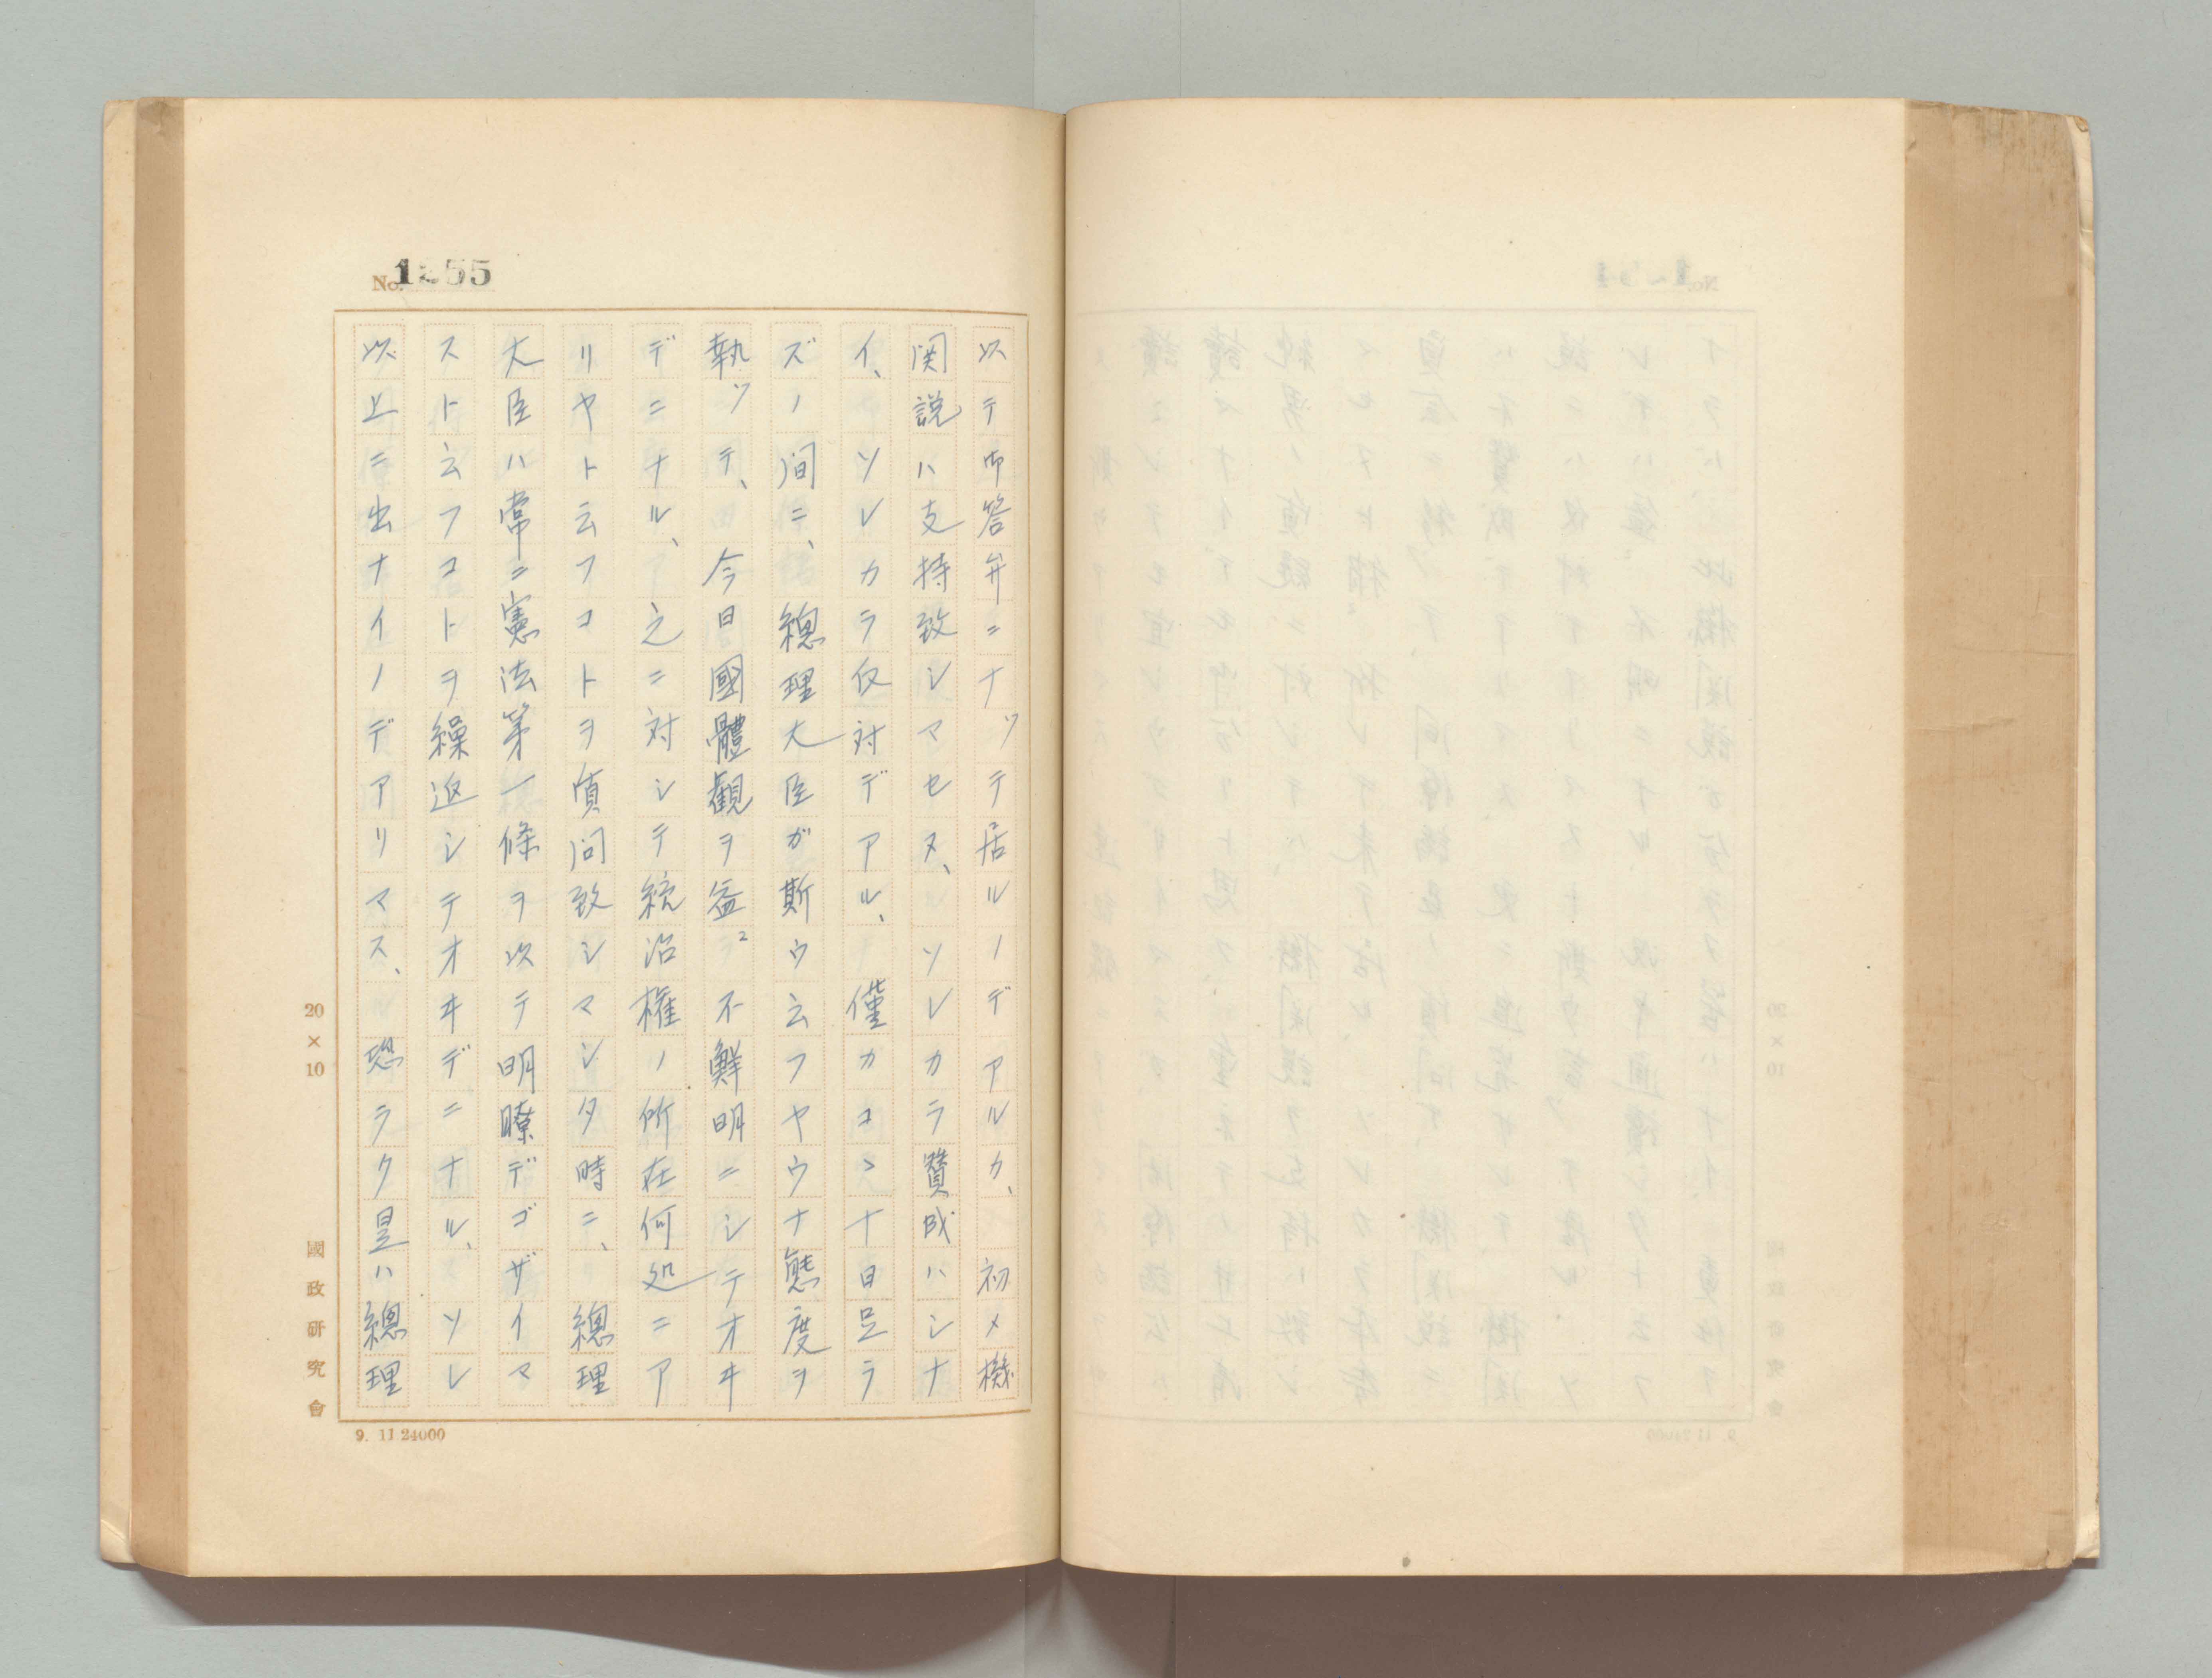 No. 1255
以テ御答弁ニナッテ居ルノデアルカ、初メ機
関説ハ支持致シマセヌ、ソレカラ賛成ハシナ
イ、ソレカラ反対デアル、僅カコヽ十日足ラ
ズノ間ニ、總理大臣ガ斯ウ云フヤウナ態度ヲ
執ッテ、今日國體觀ヲ益〻不鮮明ニシテオヰ
デニナル、之ニ対シテ統治權ノ所在何処ニア
リヤト云フコトヲ質問致シマシタ時ニ、總理
大臣ハ常ニ憲法第一條ヲ以テ明瞭デゴザイマ
ストムフコトヲ繰返シテオヰデニナル、ソレ
以上ニ出ナイノデアリマス、恐ラク是ハ總理
20×10
國政研究會
9. 11 24000